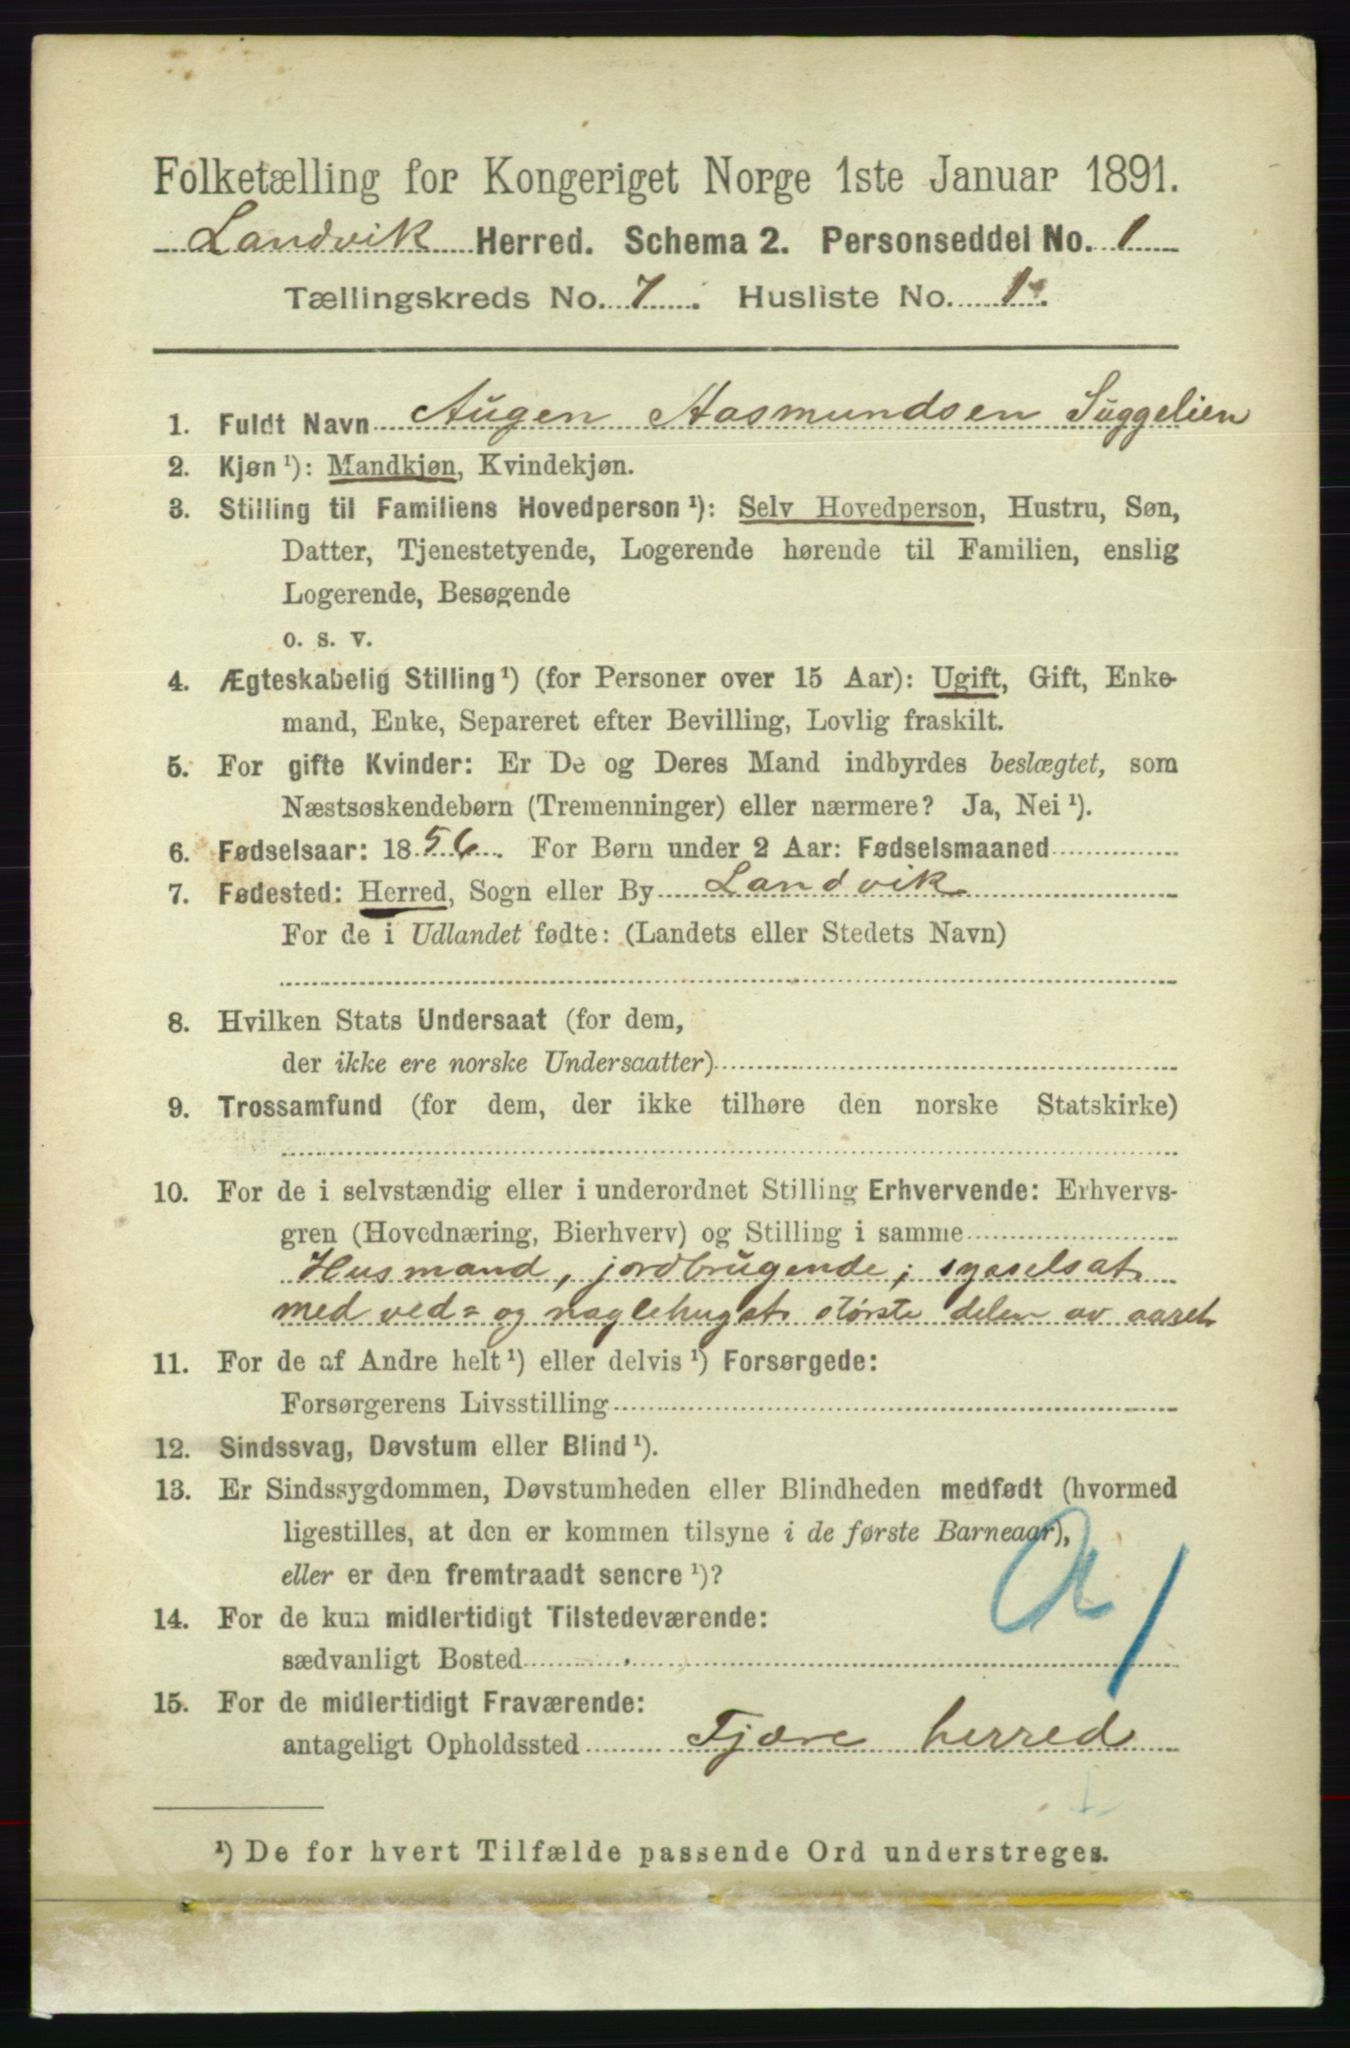 Folketælling for Kongeriget Norge 1ste Januar 1891.
Landvik Herred. Schema 2. Personseddel No. 1
Tællingskreds No. 7. Husliste No. 1.
1. Fuldt Navn Augen Aasmundsen Suggelien
2. Kjøn ¹): Mandkjøn, Kvindekjøn.
3. Stilling til Familiens Hovedperson ¹): Selv Hovedperson, Hustru, Søn,
Datter, Tjenestetyende, Logerende hørende til Familien, enslig
Logerende, Besøgende
o. s. v.
4. Ægteskabelig Stilling ¹) (for Personer over 15 Aar): Ugift, Gift, Enke-
mand, Enke, Separeret efter Bevilling, Lovlig fraskilt.
5. For gifte Kvinder: Er De og Deres Mand indbyrdes beslægtet, som
Næstsøskendebørn (Tremenninger) eller nærmere? Ja, Nei ¹).
6. Fødselsaar: 1856. For Børn under 2 Aar: Fødselsmaaned
7. Fødested: Herred, Sogn eller By Landvik
For de i Udlandet fødte: (Landets eller Stedets Navn)
8. Hvilken Stats Undersaat (for dem,
der ikke ere norske Undersaatter)
9. Trossamfund (for dem, der ikke tilhøre den norske Statskirke)
10. For de i selvstændig eller i underordnet Stilling Erhvervende: Erhvervs-
gren (Hovednæring, Bierhverv) og Stilling i samme
Husmand, jordbrugende; sysselsat
med ved= og naglehugst største delen av aaret
11. For de af Andre helt ¹) eller delvis ¹) Forsørgede:
Forsørgerens Livsstilling
12. Sindssvag, Døvstum eller Blind ¹).
13. Er Sindssygdommen, Døvstumheden eller Blindheden medfødt (hvormed
ligestilles, at den er kommen tilsyne i de første Barneaar),
eller er den fremtraadt senere ¹)?
14. For de kun midlertidigt Tilstedeværende:
sædvanligt Bosted
15. For de midlertidigt Fraværende:
antageligt Opholdssted Fjære herred
¹) De for hvert Tilfælde passende Ord understreges.